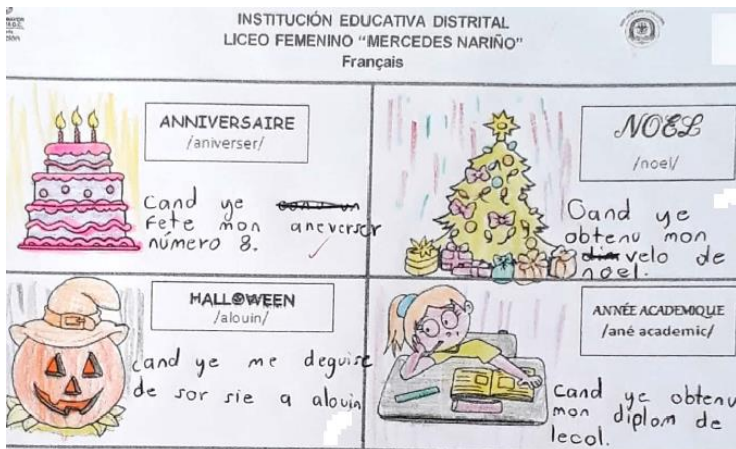 INSTITUCIÓN EDUCATIVA DISTRITAL
LICEO FEMENINO “MERCEDES NARIÑO”
Français
ANNIVERSAIRE
/aniverser/
Cand ye
fete mon aneverser
número 8.
NOEL
/noel/
Cand ye
obtenu mon
velo de
noel.
HALLOWEEN
/alouin/
cand ye me deguise
de sor sie a alouin
ANNÉE ACADEMIQUE
/ané academic/
Cand ye obtenu
mon diplom de
lecol.